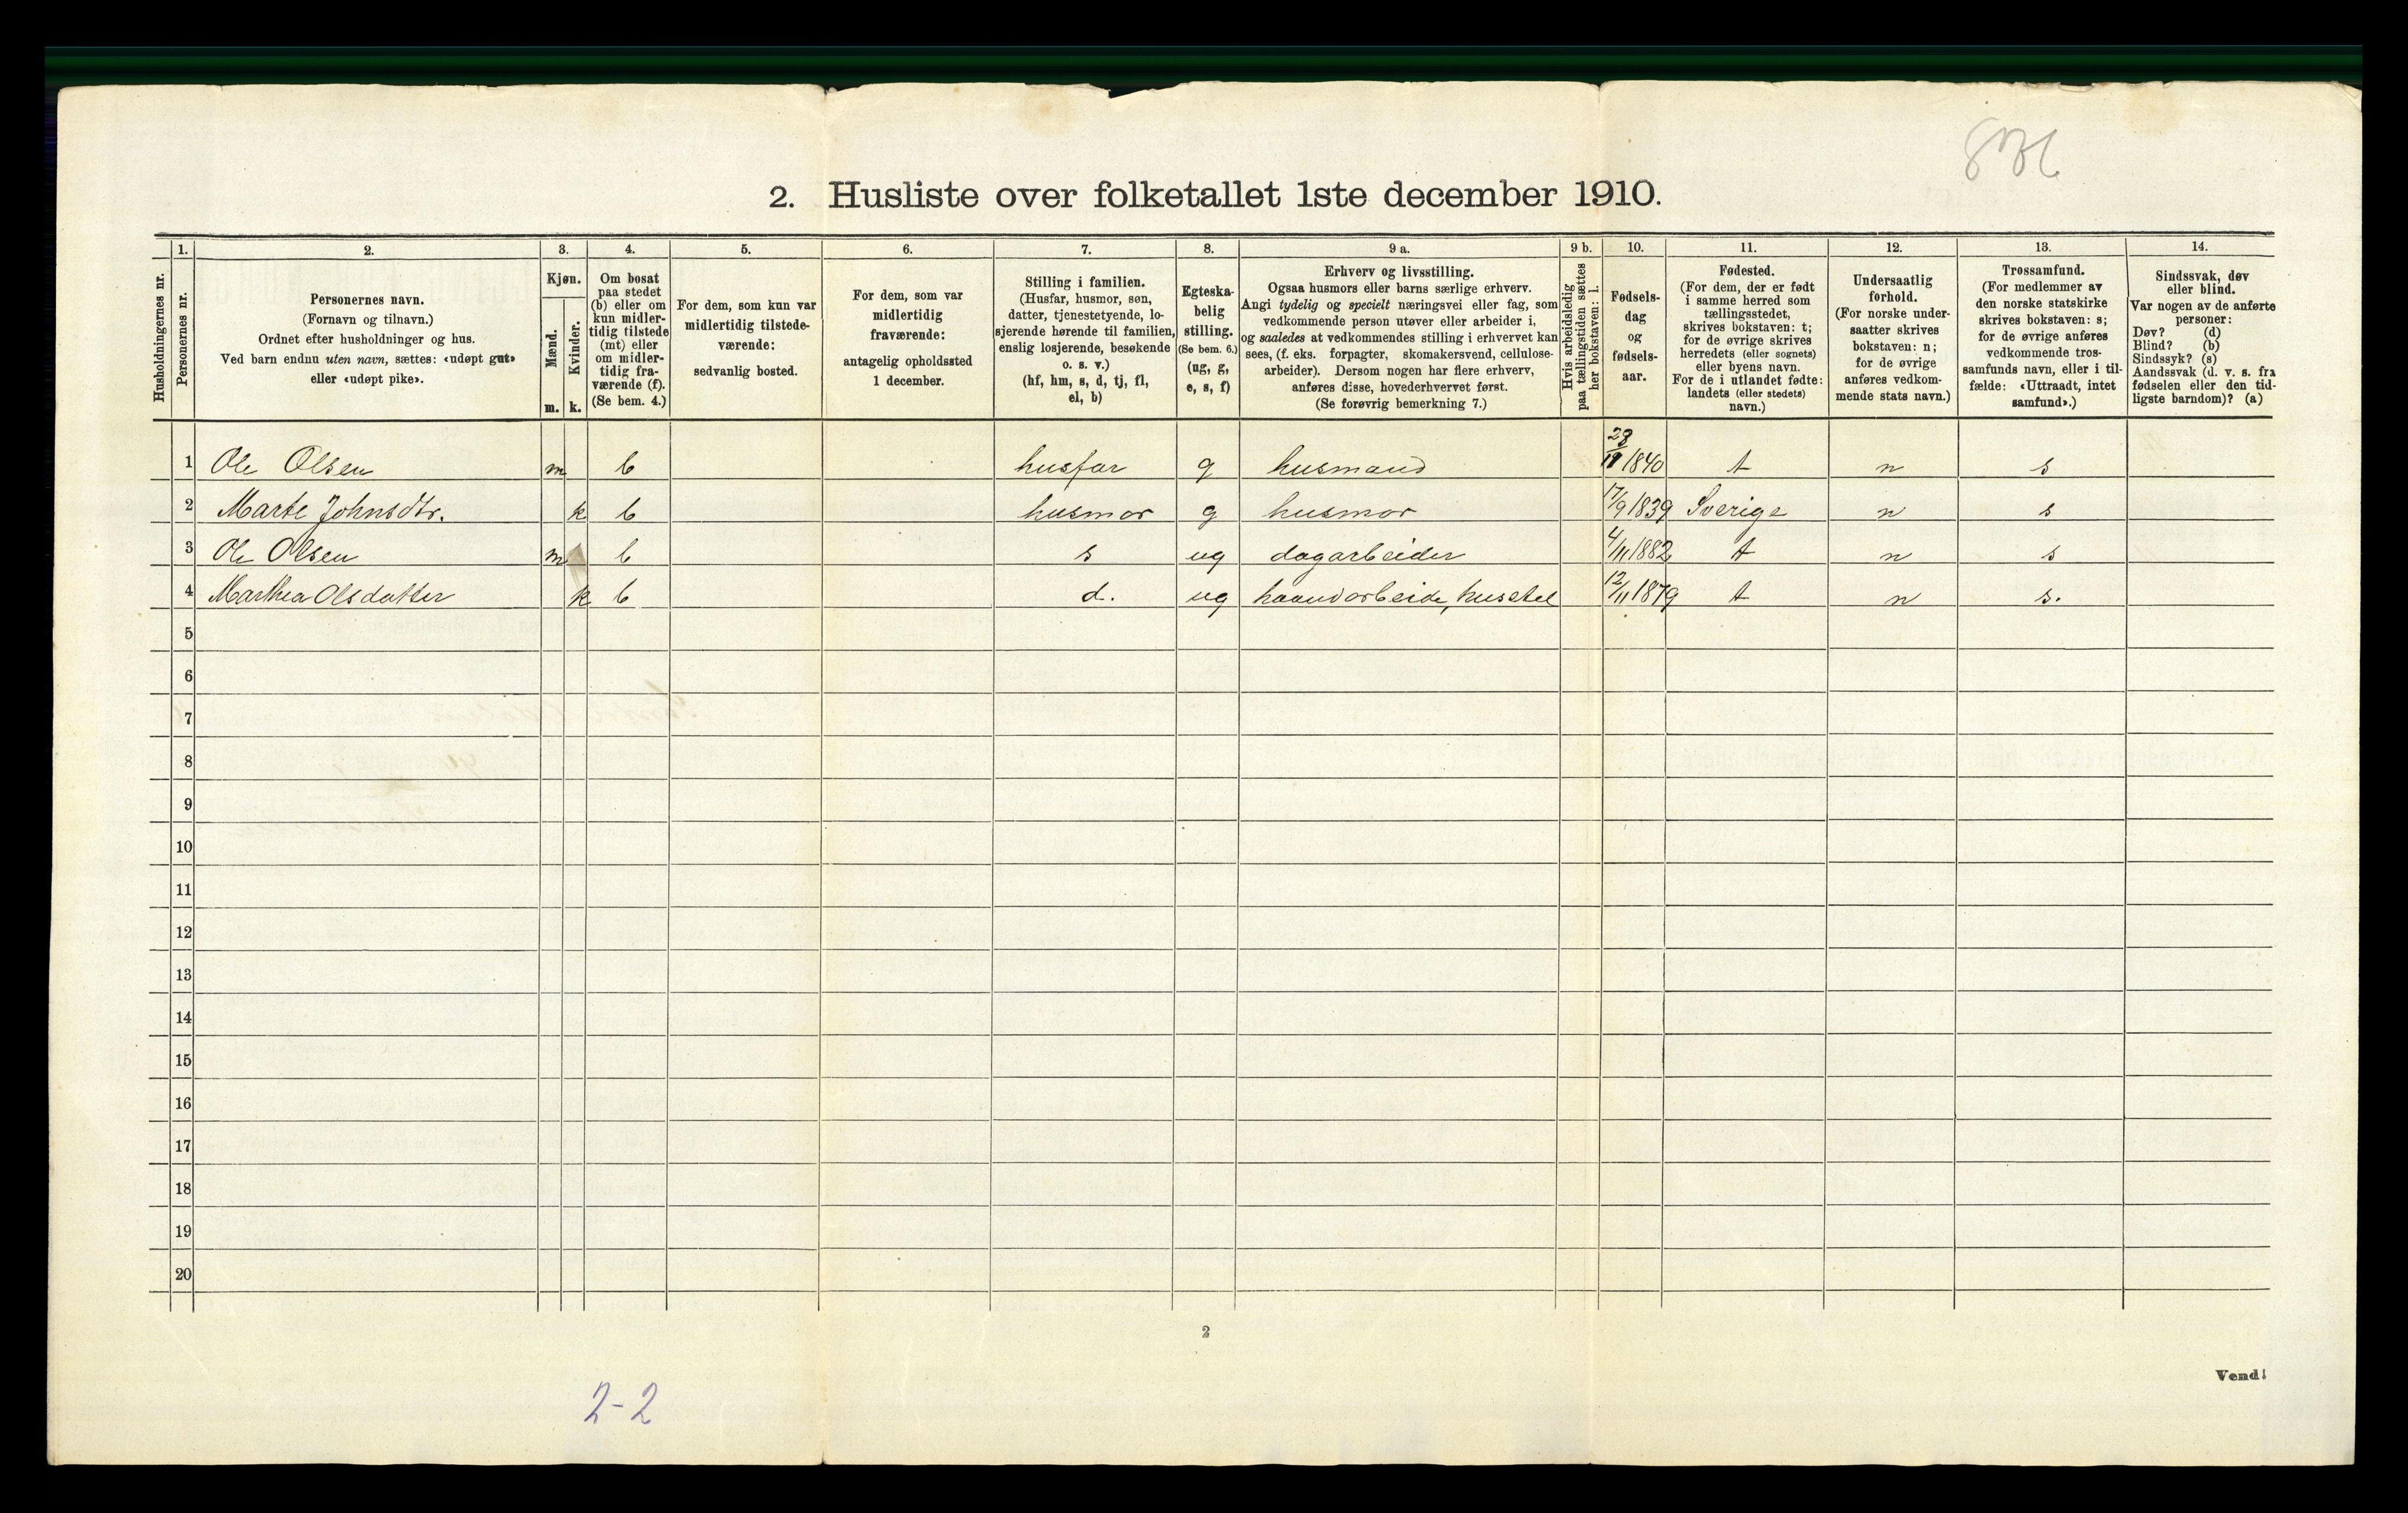 836
2. Husliste over folketallet 1ste december 1910.
Husholdningernes nr.
1.
Personernes nr.
2.
Personernes navn.
(Fornavn og tilnavn.)
Ordnet efter husholdninger og hus.
Ved barn endnu uten navn, sættes: «udøpt gut»
eller «udøpt pike».
3.
Kjøn.
Mænd.
Kvinder.
m. k.
4.
Om bosat
paa stedet
(b) eller om
kun midler-
tidig tilstede
(mt) eller
om midler-
tidig fra-
værende (f).
(Se bem. 4.)
5.
For dem, som kun var
midlertidig tilstede-
værende:
sedvanlig bosted.
6.
For dem, som var
midlertidig
fraværende:
antagelig opholdssted
1 december.
7.
Stilling i familien.
(Husfar, husmor, søn,
datter, tjenestetyende, lo-
sjerende hørende til familien,
enslig losjerende, besøkende
o. s. v.)
(hf, hm, s, d, tj, fl,
el, b)
8.
Egteska-
belig
stilling.
(Se bem. 6.)
(ug, g,
e, s, f)
9 a.
Erhverv og livsstilling.
Ogsaa husmors eller barns særlige erhverv.
Angi tydelig og specielt næringsvei eller fag, som
vedkommende person utøver eller arbeider i,
og saaledes at vedkommendes stilling i erhvervet kan
sees, (f. eks. forpagter, skomakersvend, cellulose-
arbeider). Dersom nogen har flere erhverv,
anføres disse, hovederhvervet først.
(Se forøvrig bemerkning 7.)
9 b.
Hvis arbeidsledig
paa tællingstiden sættes
her bokstaven: l.
10.
Fødsels-
dag
og
fødsels-
aar.
11.
Fødested.
(For dem, der er født
i samme herred som
tællingsstedet,
skrives bokstaven: t;
for de øvrige skrives
herredets (eller sognets)
eller byens navn.
For de i utlandet fødte:
landets (eller stedets)
navn.)
12.
Undersaatlig
forhold.
(For norske under-
saatter skrives
bokstaven: n;
for de øvrige
anføres vedkom-
mende stats navn.)
13.
Trossamfund.
(For medlemmer av
den norske statskirke
skrives bokstaven: s;
for de øvrige anføres
vedkommende tros-
samfunds navn, eller i til-
fælde: «Uttraadt, intet
samfund».)
14.
Sindssvak, døv
eller blind.
Var nogen av de anførte
personer:
Døv? (d)
Blind? (b)
Sindssyk? (s)
Aandssvak (d. v. s. fra
fødselen eller den tid-
ligste barndom)? (a)
1 Ole Olsen m b husfar g husmand 1840 t n s
2 Marte Johnsdtr. k b husmor g husmor 17/9 1839 Sverige n s
3 Ole Olsen m b s ug dagarbeider 4/11 1882 t n s
4 Marthea Olsdatter k b d. ug haandarbeide, husstel 12/11 1879 t n s.
5
6
7
8
9
10
11
12
13
14
15
16
17
18
19
20
2
Vend!
2-2